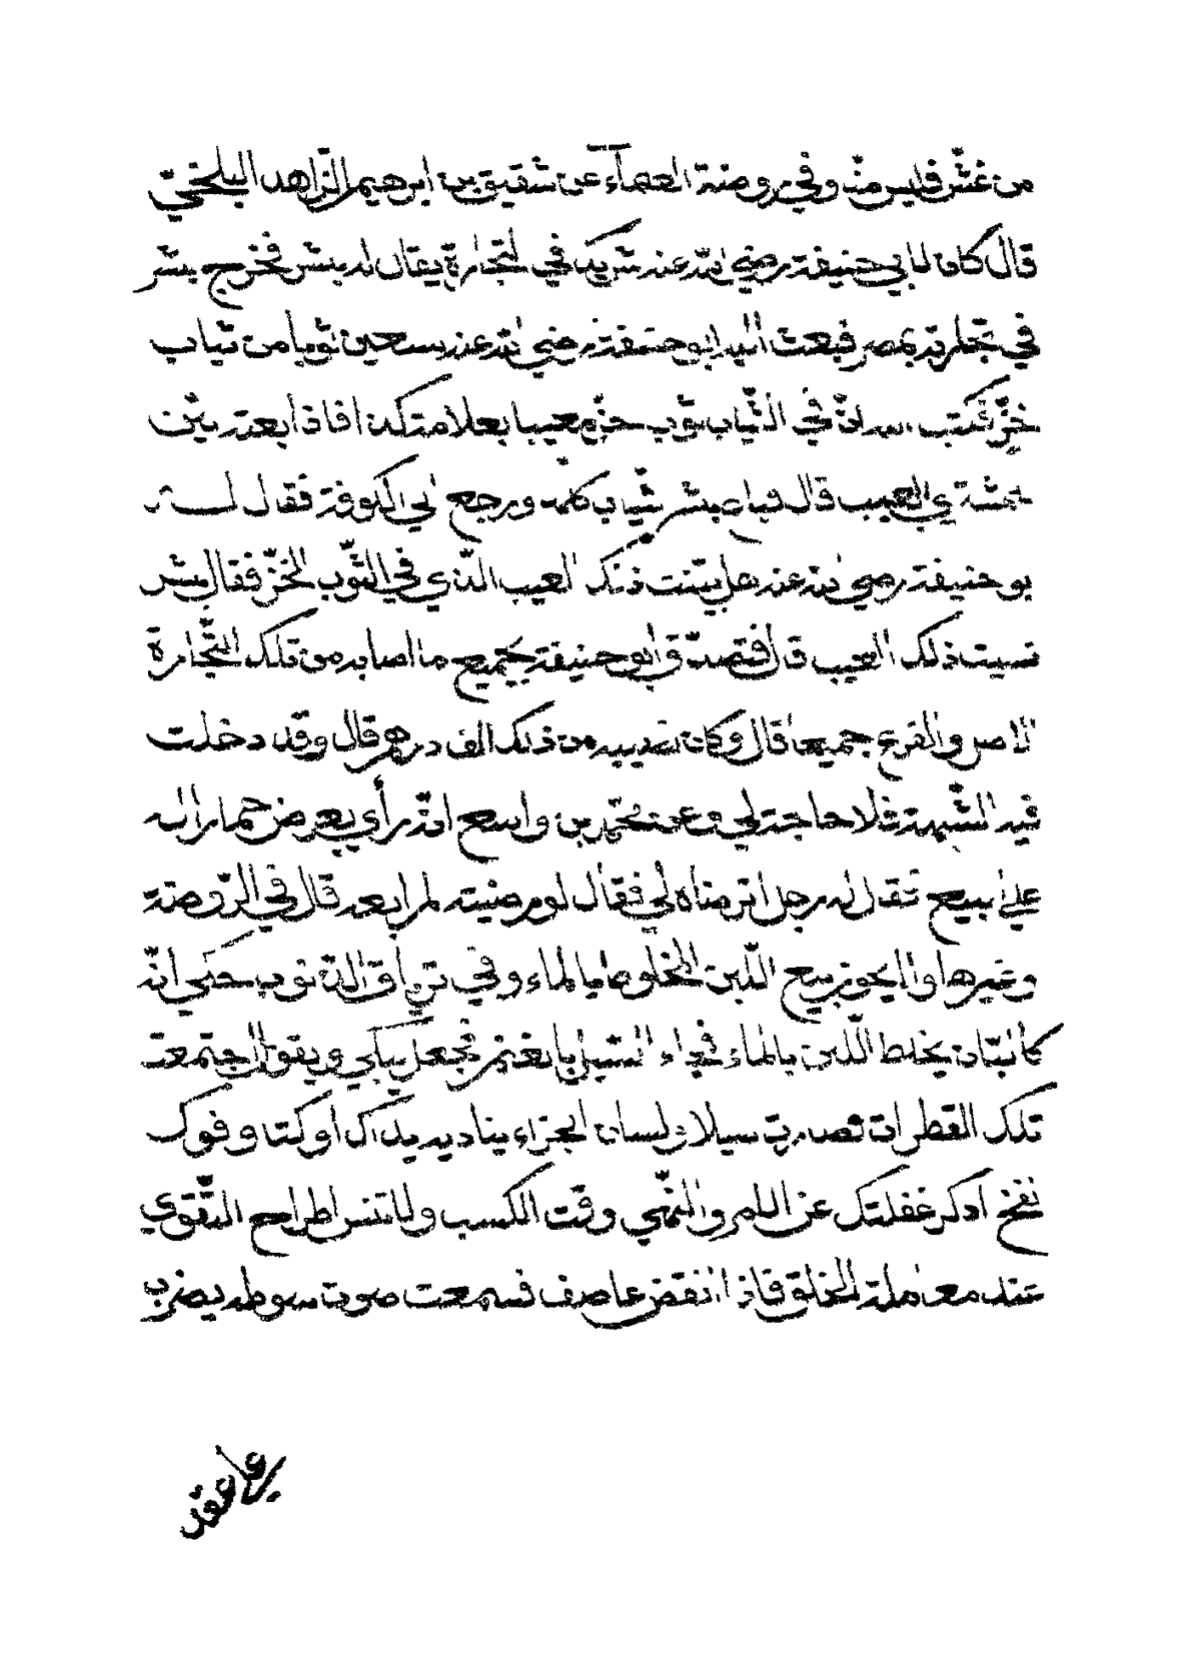 من غشّ فليس منّه وفي روضة العلمآء عن شقيق بن ابرهيم الزّاهد البلخيّ
قال كان لابي حنيفة رضي الله عنه شريك في التجارة يقال له بشر فخرج بشر
في تجارته بمصر فبعث اليه ابو حنيفة رضي الله عنه سبعين ثوبا من ثياب
خزّ فكتب اليه انّ في الثّياب ثوب خزّ معيبا بعلامة كذا فاذا بعته بيّن
للمشتري العيب قال فباع بشر الثّياب كلّه ورجع الي الكوفة فقال له
بو حنيفة رضي الله عنه هل بيّنت ذلك العيب الّذي في الثّوب الخزّ فقال بشر
نسيت ذلك العيب قال فتصدّق ابو حنيفة بجميع ما اصابه من تلك التّجارة
الاصل والفرع جميعا قال وكان نصيبه من ذلك الف درهم قال وقد دخلت
فيه الشّبهة فلا حاجة لي وعن محمّد بن واسع انّه رأي يعرض حمارا له
علي البيع فقال له رجل اترضاه لي فقال لو رضيته لم ابعه قال في الرّوضة
وغيرها ولا يجوز بيع اللّبن المخلوط بالماء وفي ترياق الذنوب حكي انّه
كان لبّان يخلط اللّبن بالماء فجاء السّيل بالغنم فجعل يبكي ويقول اجتمعت
تلك القطرات فصارت سيلا ولسان الجزاء يناديه يداك اوكتا وفوك
نفخ اذكر غفلتك عن الامر والنّهي وقت الكسب ولا تنس اطراح التّقوي
عند معاملة الخلق فاذا انقض عاصف فسمعت صوت سوطه يضرب